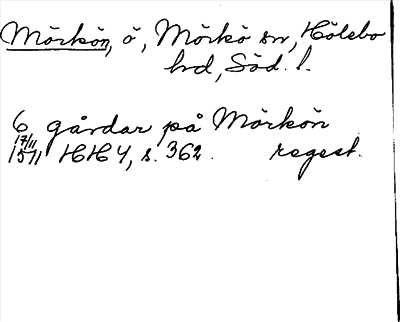 Mörkön, ö, Mörkö sn, Hölebo
hd, Söd. l.
6 gårdar på Mörkön
17/11
1511 HH 4, s. 362. regest.